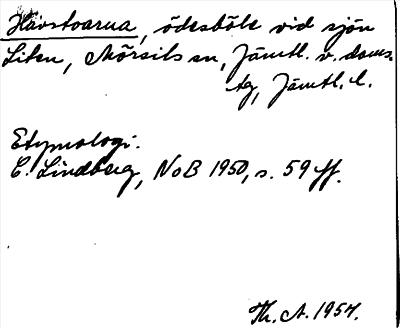 Hävstoarna, ödesböle vid sjön
Liten, Mörsils sn, Jämtl. v. doms.
tg, Jämtl. l.
Etymologi.
C. Lindberg, NoB 1950, s. 59 ff.
Th. A. 1957.